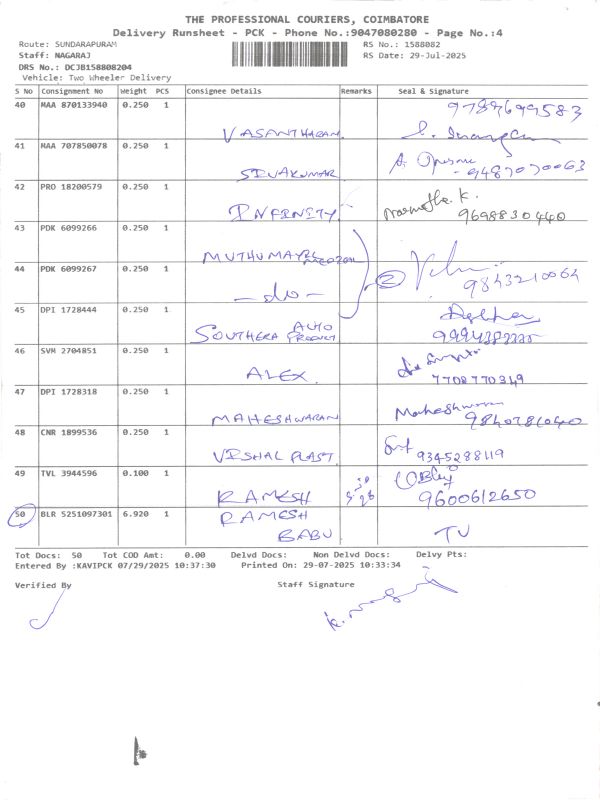 THE PROFESSIONAL COURIERS, COIMBATORE
Delivery Runsheet - PCK - Phone No.:9047080280 - Page No.:4
Route: SUNDARAPURAM RS No.: 1588082
Staff: NAGARAJ RS Date: 29-Jul-2025
DRS No.: DCJB158808204
Vehicle: Two Wheeler Delivery
S No Consignment No Weight PCS Consignee Details Remarks Seal & Signature
40 MAA 870133940 0.250 1 VASANTHARAM 9789699583
41 MAA 707850078 0.250 1 SIVAKUMAR 9487070063
42 PRO 18200579 0.250 1 INFINITY K. 9698830440
43 PDK 6099266 0.250 1 MUTHUMAYEL
44 PDK 6099267 0.250 1 -do- 2 9843210064
45 DPI 1728444 0.250 1 SOUTHERA AUTO PRODUCT
46 SVM 2704851 0.250 1 ALEX. 7708770349
47 DPI 1728318 0.250 1 MAHESHWARAN Maheshwaran 9840781040
48 CNR 1899536 0.250 1 VISHAL PLAST. 9345288119
49 TVL 3944596 0.100 1 RAMESH 9600612650
50 BLR 5251097301 6.920 1 RAMESH BABU TU
Tot Docs: 50 Tot COD Amt: 0.00 Delvd Docs: Non Delvd Docs: Delvy Pts:
Entered By :KAVIPCK 07/29/2025 10:37:30 Printed On: 29-07-2025 10:33:34
Verified By Staff Signature